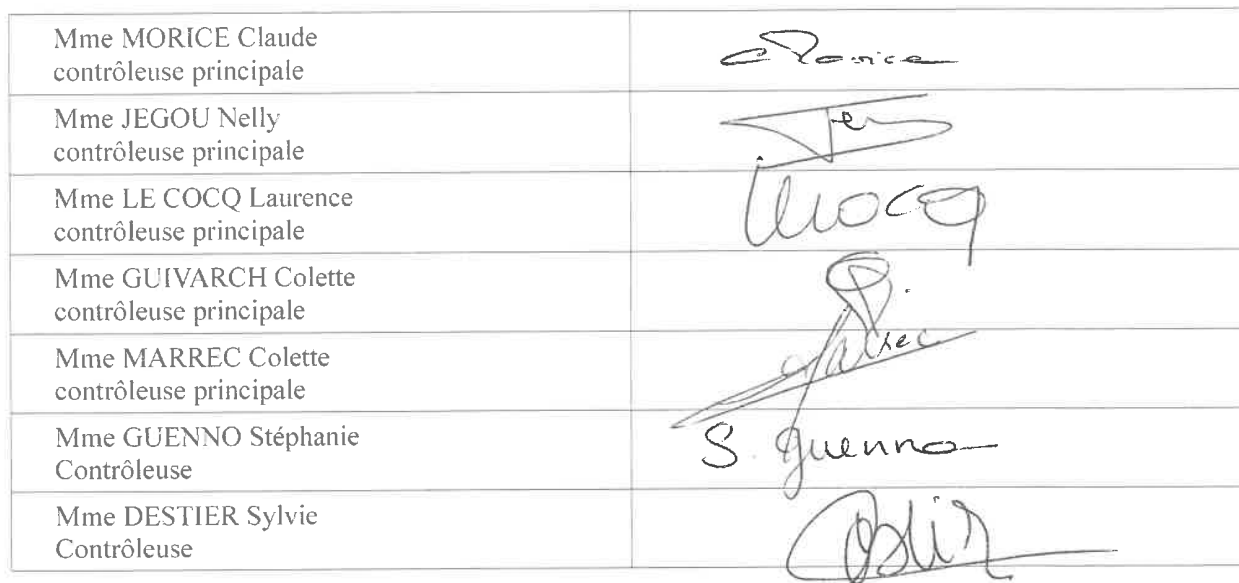 Mme MORICE Claude
contrôleuse principale
Mme JEGOU Nelly
contrôleuse principale
Mme LE COCQ Laurence
contrôleuse principale
Mme GUIVARCH Colette
contrôleuse principale
Mme MARREC Colette
contrôleuse principale
Mme GUENNO Stéphanie
Contrôleuse
S. Guenno
Mme DESTIER Sylvie
Contrôleuse